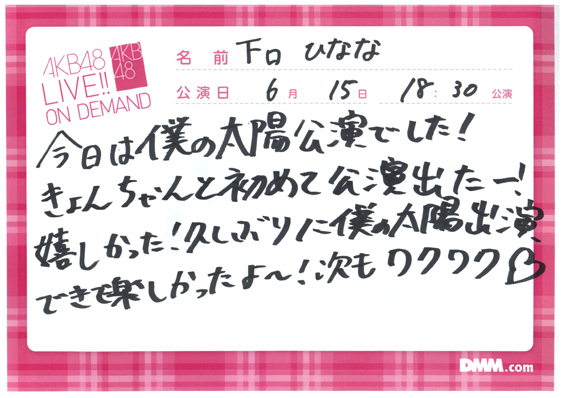 AKB48
LIVE!!
ON DEMAND
AKB
48
名前 下口 ひなな
公演日 6月 15日 18:30 公演
今日は僕の太陽公演でした!
きょんちゃんと初めて公演出たー!
嬉しかった!久しぶりに僕の太陽出演
できて楽しかったよ〜!次もワクワク♡
DMM.com